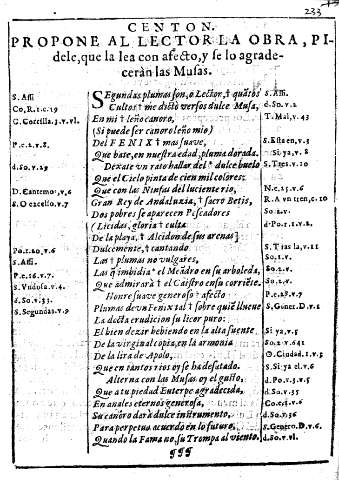 233
CENTON.
PROPONE AL LECTOR LA OBRA, PI-
dele, que la lea con afecto, y se lo agrade-
ceràn las Musas.
S. Assi Segundas plumas son, o Lector, † quãtos S. Assi.
Co, R. 1. c. 19 Cultos † me dictò versos dulce Musa, d. So. v. 2
G. Corcilla. 3. v. vl. En mi † leño canoro, T. Mai, 43
(Si puede ser canoro leño mio)
P. c. 2. v. 8. Del FENIX † mas suave, S. Esta en, v. 3
Que bate, en nuestra edad, pluma dorada. Si ya, v. 8
d. So. v. 29 Deuate un rato hallar del † dulce buelo S. Tres. v. 10
Que el Cielo pinta de cien mil colores;
D. Cantemo, v, 6 Que con las Ninfas del luciente rio, N. c. 25. v. 6
S. O excelso. v. 7 Gran Rey de Andaluzia, † sacro Betis, R. A vn tren, c. 10
Dos pobres se aparecen Pescadores So. 2. v.
(Licidas, gloria † culta d. Po. r. 1. v. 2.
De la playa, † Alcidon de sus arenas)
Po. r. 20. v. 6 Dulcemente, † cantando S. Tras la, v. 11
S. Assi. Las † plumas no vulgares, So. 1. v.
P. c. 16. v. 7. Las q̃ imbidia † el Meãdro en su arboleda, So. 2. v.
S. Vndosa v. 4. Que admirarà † el Caistro en su corriẽte. So. 2. v.
d. So. v. 33. Honre suave generoso † afecto P. c. 23. v. 7
S. Segundas. v. 9 Plumas de vn Fenix tal † sobre quiẽ llueue S. Gener. D. v. 1
Es docta erudicion su licor puro:
El bien dezir bebiendo en la alta fuente Si ya, v. 5
De la virginal copia, en la armonia So. 2. v. 641
De la lira de Apolo, O. Ciudad. 1. v. 5
Que en tantos rios oy se ha desatado. S. Si ya el. v. 6
Alterna con las Musas oy el gusto, d. Po. v. 3. v. 5
Que a tu piedad Euterpe agradecida, d. So. v. 35
En anales eternos generosa, Co. c. 1. v. 6
Su canòro darà dulce instrumento, d. So. v. 36
Para perpetuo acuerdo en lo futuro, S. Genero. D. v. 6
Quando la Fama no, su Trompa al viento. d. So. v. vl.